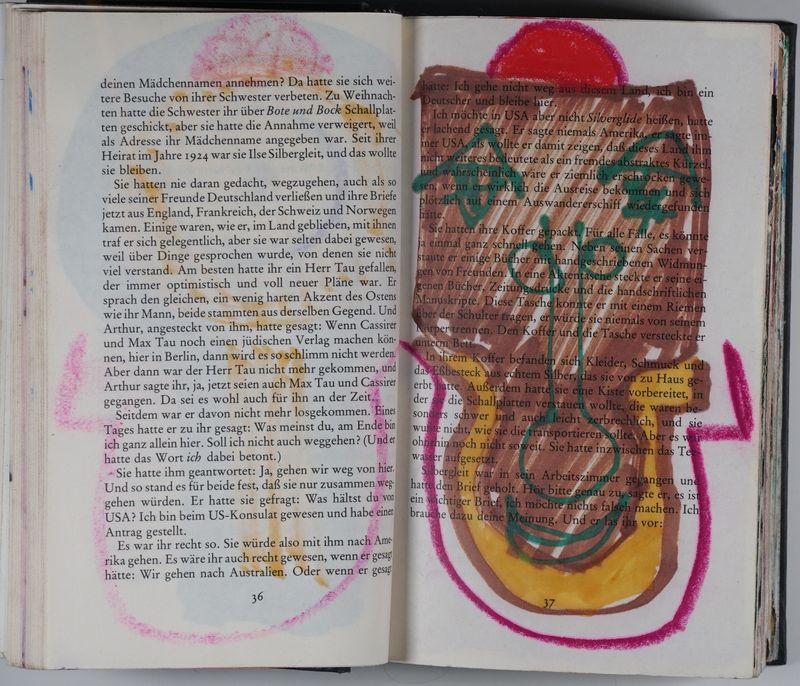 deinen Mädchennamen annehmen? Da hatte sie sich wei-
tere Besuche von ihrer Schwester verbeten. Zu Weihnach-
ten hatte die Schwester ihr über Bote und Bock Schallplat-
ten geschickt, aber sie hatte die Annahme verweigert, weil
als Adresse ihr Mädchenname angegeben war. Seit ihrer
Heirat im Jahre 1924 war sie Ilse Silbergleit, und das wollte
sie bleiben.
Sie hatten nie daran gedacht, wegzugehen, auch als so
viele seiner Freunde Deutschland verließen und ihre Briefe
jetzt aus England, Frankreich, der Schweiz und Norwegen
kamen. Einige waren, wie er, im Land geblieben, mit ihnen
traf er sich gelegentlich, aber sie war selten dabei gewesen,
weil über Dinge gesprochen wurde, von denen sie nicht
viel verstand. Am besten hatte ihr ein Herr Tau gefallen,
der immer optimistisch und voll neuer Pläne war. Er
sprach den gleichen, ein wenig harten Akzent des Ostens
wie ihr Mann, beide stammten aus derselben Gegend. Und
Arthur, angesteckt von ihm, hatte gesagt: Wenn Cassirer
und Max Tau noch einen jüdischen Verlag machen kön-
nen, hier in Berlin, dann wird es so schlimm nicht werden.
Aber dann war der Herr Tau nicht mehr gekommen, und
Arthur sagte ihr, ja, jetzt seien auch Max Tau und Cassirer
gegangen. Da sei es wohl auch für ihn an der Zeit.
Seitdem war er davon nicht mehr losgekommen. Eines
Tages hatte er zu ihr gesagt: Was meinst du, am Ende bin
ich ganz allein hier. Soll ich nicht auch weggehen? (Und er
hatte das Wort ich dabei betont.)
Sie hatte ihm geantwortet: Ja, gehen wir weg von hier.
Und so stand es für beide fest, daß sie nur zusammen weg-
gehen würden. Er hatte sie gefragt: Was hältst du von
USA? Ich bin beim US-Konsulat gewesen und habe einen
Antrag gestellt.
Es war ihr recht so. Sie würde also mit ihm nach Ame-
rika gehen. Es wäre ihr auch recht gewesen, wenn er gesagt
hätte: Wir gehen nach Australien. Oder wenn er gesagt
36
hätte: Ich gehe nicht weg aus diesem Land, ich bin ein
Deutscher und bleibe hier.
Ich möchte in USA aber nicht Silberglide heißen, hatte
er lachend gesagt. Er sagte niemals Amerika, er sagte im-
mer USA, als wollte er damit zeigen, daß dieses Land ihm
nicht weiteres bedeutete als ein fremdes abstraktes Kürzel,
und wahrscheinlich wäre er ziemlich erschrocken gewe-
sen, wenn er wirklich die Ausreise bekommen und sich
plötzlich in einem Auswandererschiff wiedergefunden
hätte.
Sie hatten ihre Koffer gepackt. Für alle Fälle, es könnte
ja einmal ganz schnell gehen. Neben seinen Sachen ver-
staute er einige Bücher mit handgeschriebenen Widmun-
gen von Freunden. In eine Aktentasche steckte er seine ei-
genen Bücher, Zeitungsdrucke und die handschriftlichen
Manuskripte. Diese Tasche konnte er mit einem Riemen
über der Schulter tragen, er würde sie niemals von seinem
Körper trennen. Den Koffer und die Tasche versteckte er
unterm Bett.
In ihrem Koffer befanden sich Kleider, Schmuck und
das Eßbesteck aus echtem Silber, das sie von zu Haus ge-
erbt hatte. Außerdem hatte sie eine Kiste vorbereitet, in
der sie die Schallplatten verstauen wollte, die waren be-
sonders schwer und auch leicht zerbrechlich, und sie
wußte nicht, wie sie die transportieren sollte. Aber es war
ohnehin noch nicht so weit. Sie hatte inzwischen das Tee-
wasser aufgesetzt.
Silbergleit war in sein Arbeitszimmer gegangen und
hatte den Brief geholt. Hör bitte genau zu, sagte er, es ist
ein wichtiger Brief, ich möchte nichts falsch machen. Ich
brauche dazu deine Meinung. Und er las ihr vor:
37